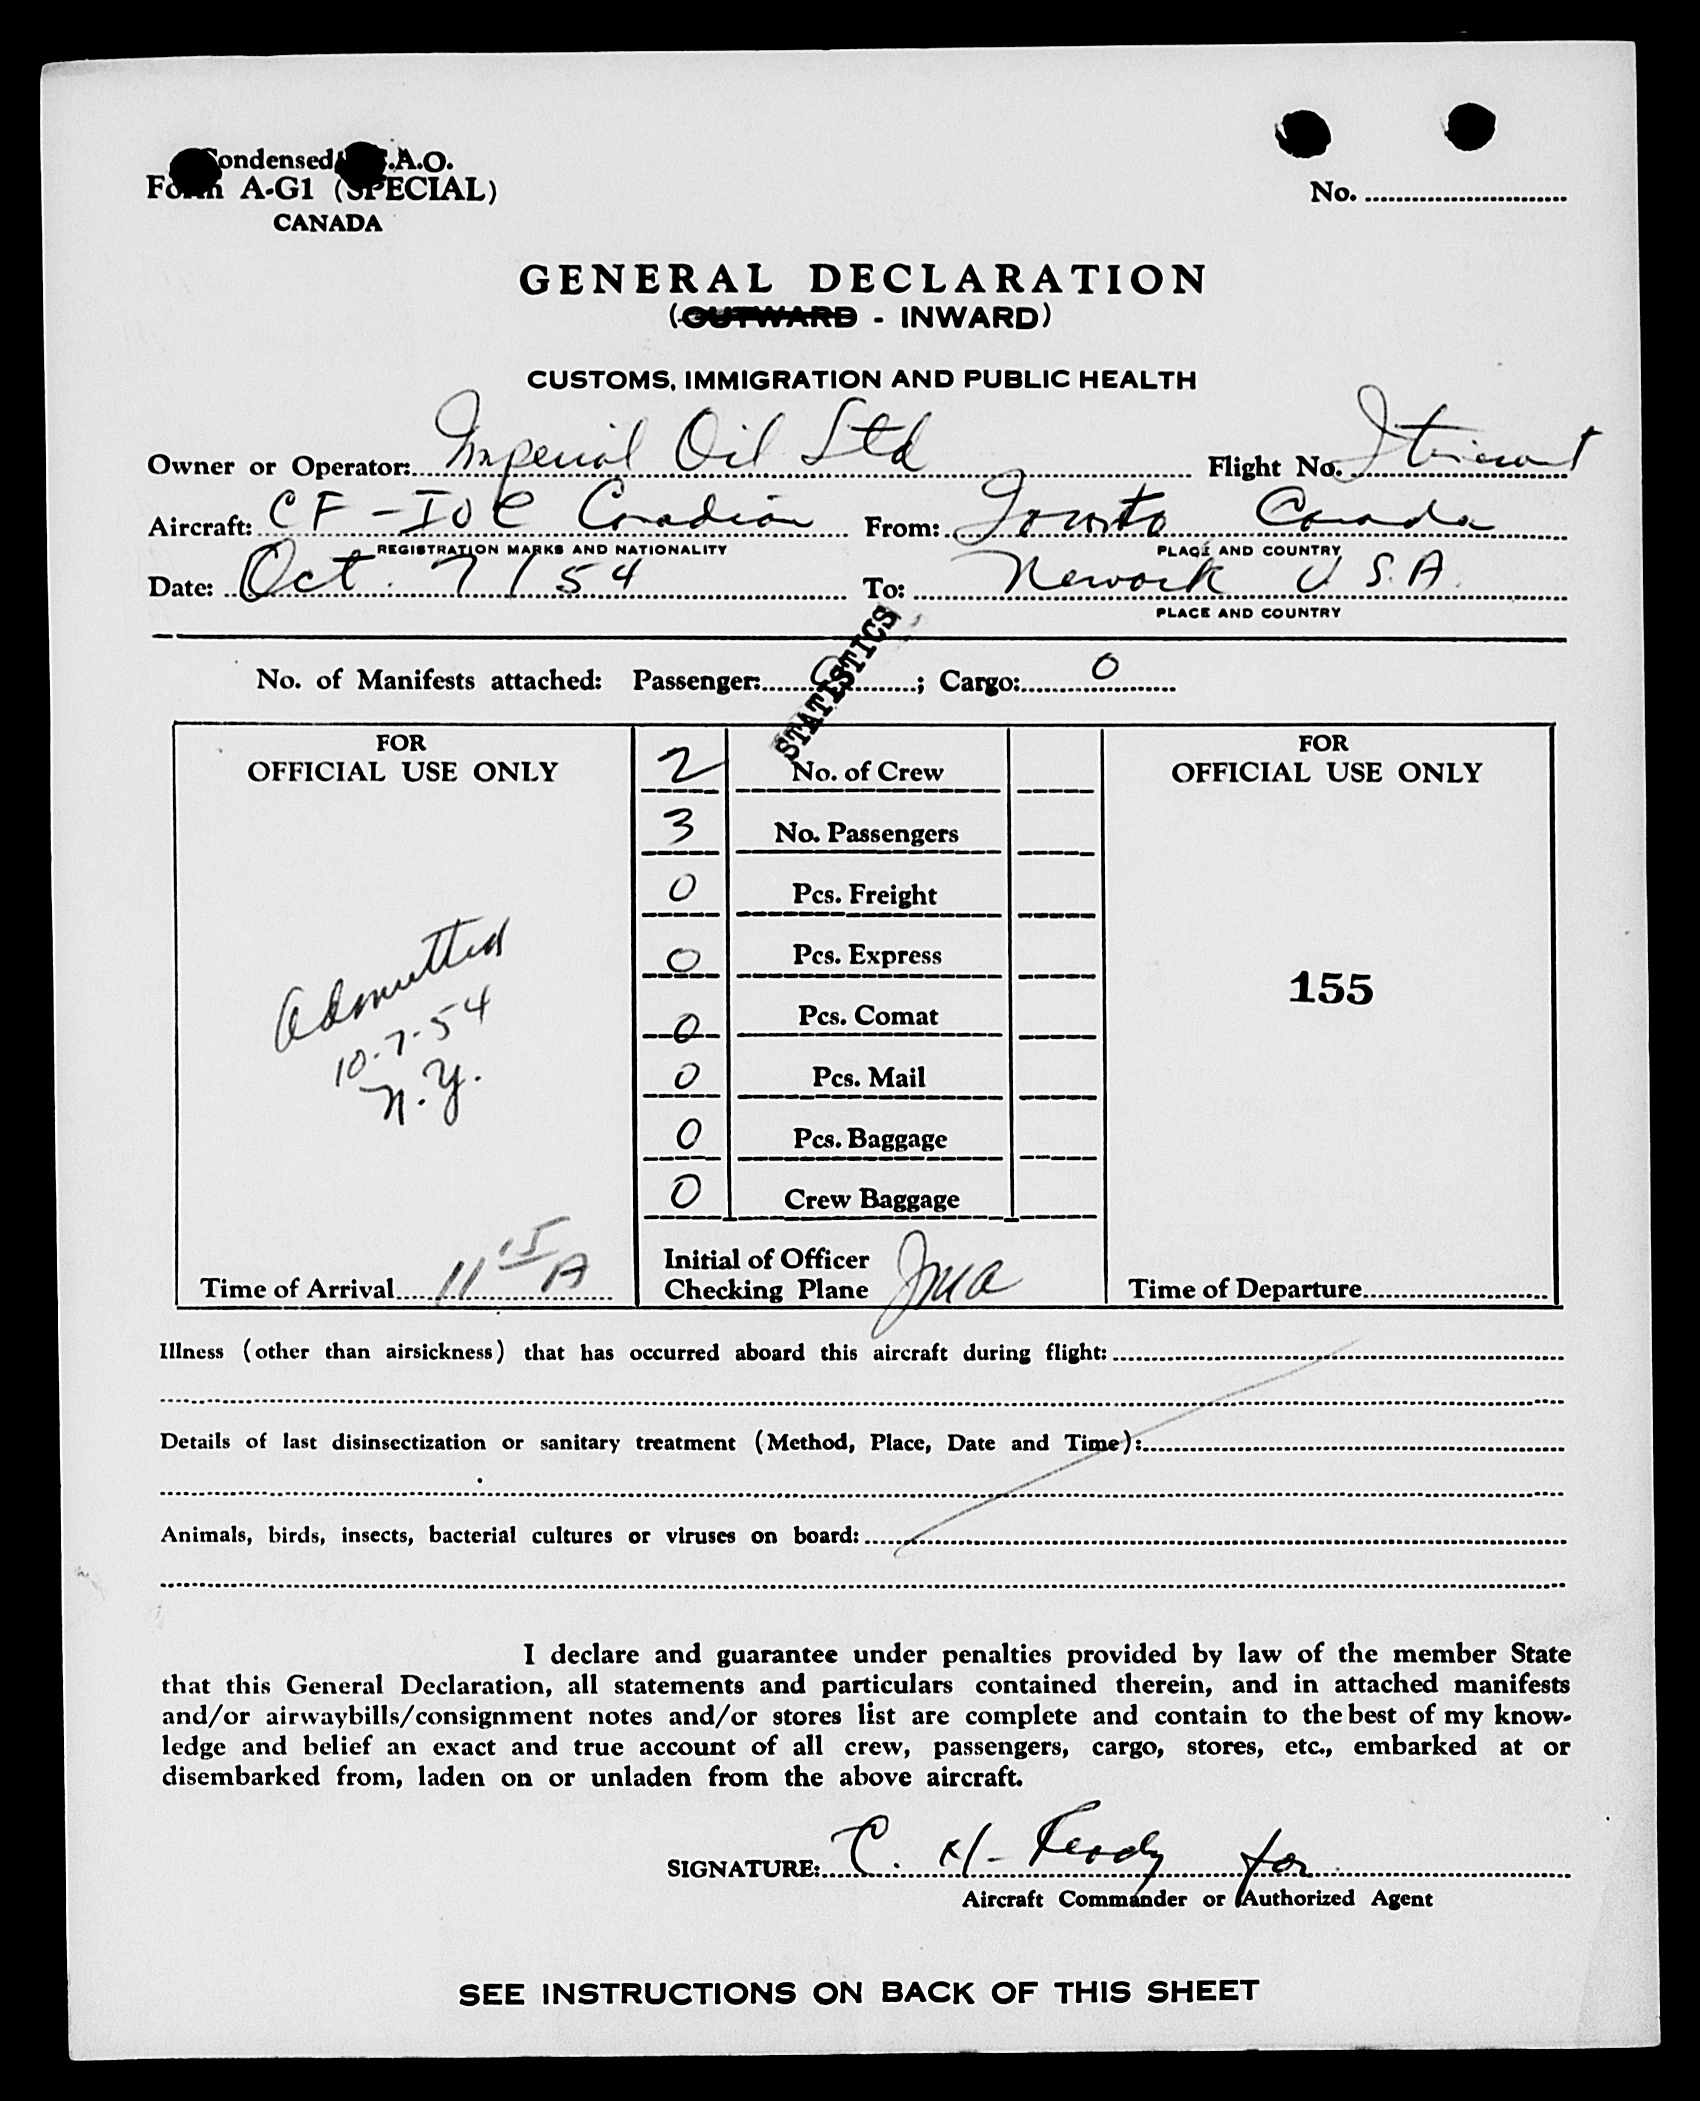 Condensed I.C.A.O.
Form A-G1 (SPECIAL)
CANADA
No.
GENERAL DECLARATION
(OUTWARD - INWARD)
CUSTOMS, IMMIGRATION AND PUBLIC HEALTH
Owner or Operator: Imperial Oil Ltd Flight No. Itinerant
Aircraft: CF-IOC Canadian From: Toronto Canada
REGISTRATION MARKS AND NATIONALITY PLACE AND COUNTRY
Date: Oct. 7/54 To: Newark U S.A.
PLACE AND COUNTRY
STATISTICS
No. of Manifests attached: Passenger: 0; Cargo: 0
FOR OFFICIAL USE ONLY
2 No. of Crew
3 No. Passengers
0 Pcs. Freight
0 Pcs. Express
0 Pcs. Comat
0 Pcs. Mail
0 Pcs. Baggage
0 Crew Baggage
FOR OFFICIAL USE ONLY
155
Admitted
10-7-54
N.Y.
Time of Arrival 11 15 A
Initial of Officer
Checking Plane
Time of Departure
Illness (other than airsickness) that has occurred aboard this aircraft during flight:
Details of last disinsectization or sanitary treatment (Method, Place, Date and Time):
Animals, birds, insects, bacterial cultures or viruses on board:
I declare and guarantee under penalties provided by law of the member State
that this General Declaration, all statements and particulars contained therein, and in attached manifests
and/or airwaybills/consignment notes and/or stores list are complete and contain to the best of my know-
ledge and belief an exact and true account of all crew, passengers, cargo, stores, etc., embarked at or
disembarked from, laden on or unladen from the above aircraft.
SIGNATURE: C. H. for
Aircraft Commander or Authorized Agent
SEE INSTRUCTIONS ON BACK OF THIS SHEET